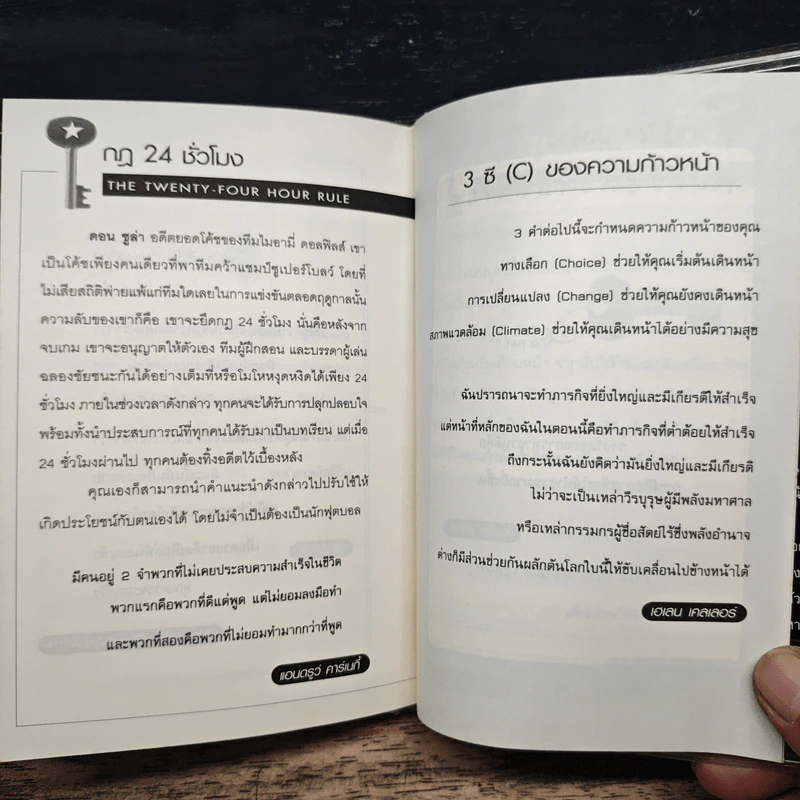 กฎ 24 ชั่วโมง
THE TWENTY-FOUR HOUR RULE
ดอน ชูล่า อดีตยอดโค้ชของทีมไมอามี่ ดอลฟิลส์ เขา
เป็นโค้ชเพียงคนเดียวที่พาทีมคว้าแชมป์ซูเปอร์โบลว์ โดยที่
ไม่เสียสถิติพ่ายแพ้แก่ทีมใดเลยในการแข่งขันตลอดฤดูกาลนั้น
ความลับของเขาก็คือ เขาจะยึดกฎ 24 ชั่วโมง นั่นคือหลังจาก
จบเกม เขาจะอนุญาตให้ตัวเอง ทีมผู้ฝึกสอน และบรรดาผู้เล่น
ฉลองชัยชนะกันได้อย่างเต็มที่หรือโมโหหงุดหงิดได้เพียง 24
ชั่วโมง ภายในช่วงเวลาดังกล่าว ทุกคนจะได้รับการปลุกปลอบใจ
พร้อมทั้งนำประสบการณ์ที่ทุกคนได้รับมาเป็นบทเรียน แต่เมื่อ
24 ชั่วโมงผ่านไป ทุกคนต้องทิ้งอดีตไว้เบื้องหลัง
คุณเองก็สามารถนำคำแนะนำดังกล่าวไปปรับใช้ให้
เกิดประโยชน์กับตนเองได้ โดยไม่จำเป็นต้องเป็นนักฟุตบอล
มีคนอยู่ 2 จำพวกที่ไม่เคยประสบความสำเร็จในชีวิต
พวกแรกคือพวกที่ดีแต่พูด แต่ไม่ยอมลงมือทำ
และพวกที่สองคือพวกที่ไม่ยอมทำมากกว่าที่พูด
แอนดรูว์ คาร์เนกี้
3 ซี (C) ของความก้าวหน้า
3 คำต่อไปนี้จะกำหนดความก้าวหน้าของคุณ
ทางเลือก (Choice) ช่วยให้คุณเริ่มต้นเดินหน้า
การเปลี่ยนแปลง (Change) ช่วยให้คุณยังคงเดินหน้า
สภาพแวดล้อม (Climate) ช่วยให้คุณเดินหน้าได้อย่างมีความสุข
ฉันปรารถนาจะทำภารกิจที่ยิ่งใหญ่และมีเกียรติให้สำเร็จ
แต่หน้าที่หลักของฉันในตอนนี้คือทำภารกิจที่ต่ำต้อยให้สำเร็จ
ถึงกระนั้นฉันยังคิดว่ามันยิ่งใหญ่และมีเกียรติ
ไม่ว่าจะเป็นเหล่าวีรบุรุษผู้มีพลังมหาศาล
หรือเหล่ากรรมกรผู้ซื่อสัตย์ไร้ซึ่งพลังอำนาจ
ต่างก็มีส่วนช่วยกันผลักดันโลกใบนี้ให้ขับเคลื่อนไปข้างหน้าได้
เฮเลน เคลเลอร์